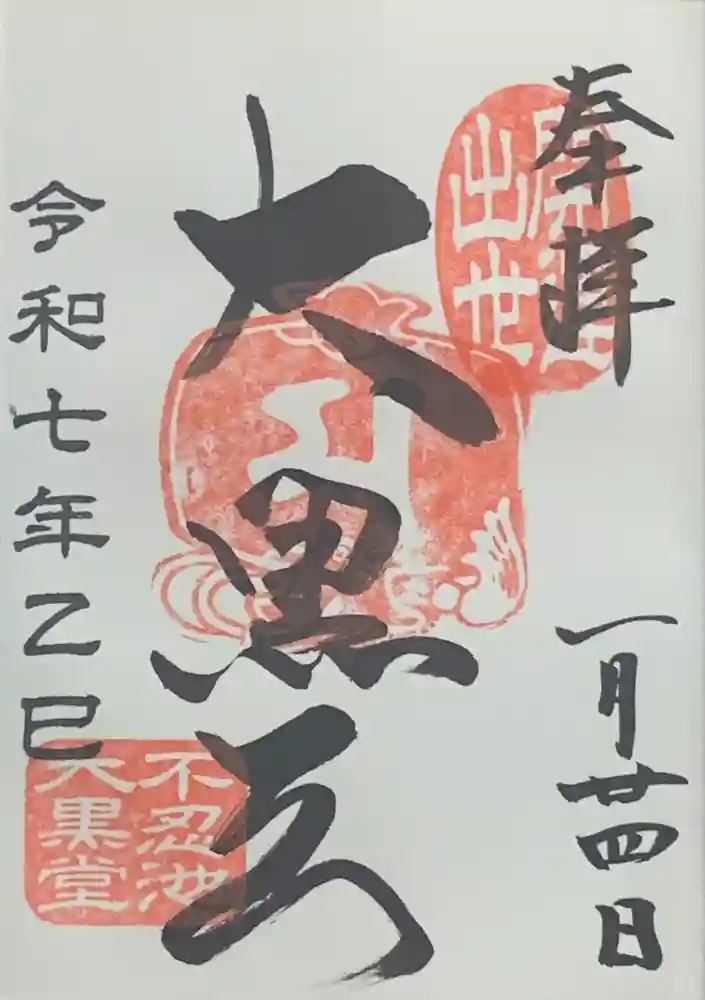 奉拝
一月廿四日
開運
出世
大黒天
令和七年乙巳
不忍池
大黒堂